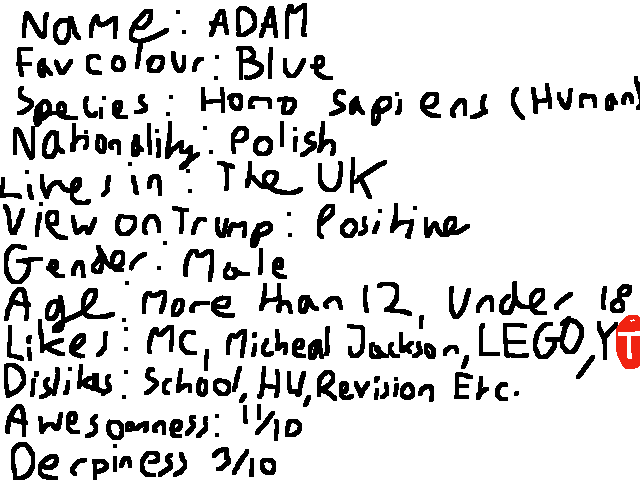 Name: ADAM
Fav colour: Blue
Species: Homo Sapiens (Human)
Nationality: Polish
Lives in: The UK
View on Trump: Positive
Gender: Male
Age: More than 12, Under 18
Likes: MC, Micheal Jackson, LEGO, YT
Dislikes: School, HW, Revision Etc.
Awesomness: 11/10
Derpiness 3/10